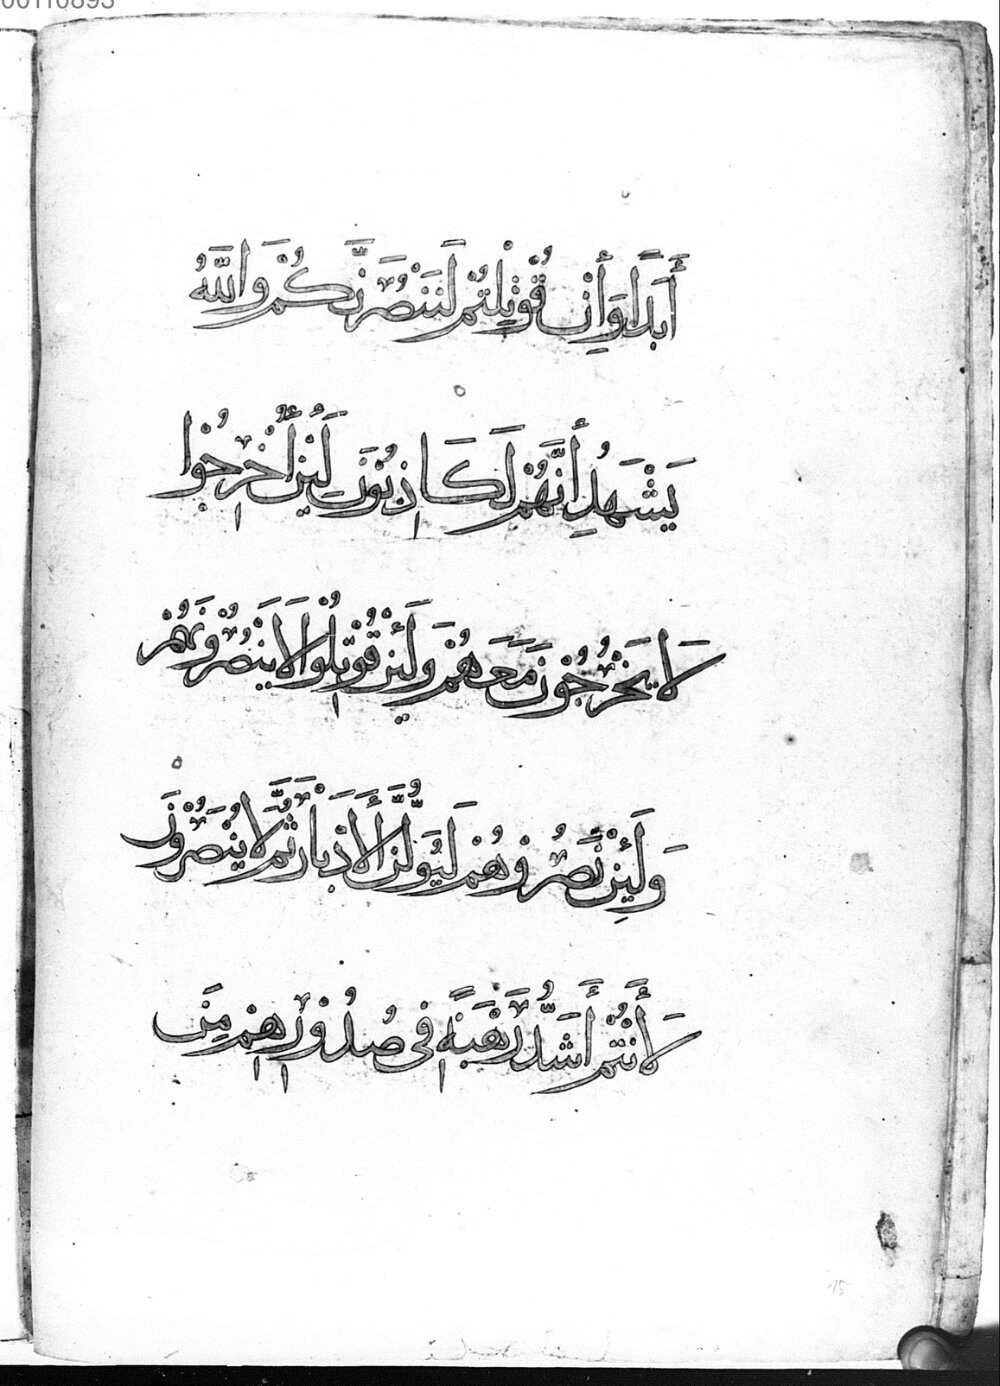 00110893
أَبَدًا وَإِن قُوتِلْتُمْ لَنَنصُرَنَّكُمْ وَاللَّهُ
يَشْهَدُ إِنَّهُمْ لَكَاذِبُونَ لَئِنْ أُخْرِجُوا
لَا يَخْرُجُونَ مَعَهُمْ وَلَئِنْ قُوتِلُوا لَا يَنْصُرُونَهُمْ
وَلَئِنْ نَصَرُوهُمْ لَيُوَلُّنَّ الْأَدْبَارَ ثُمَّ لَا يُنْصَرُونَ
لَأَنْتُمْ أَشَدُّ رَهْبَةً فِي صُدُورِهِمْ مِنَ
15